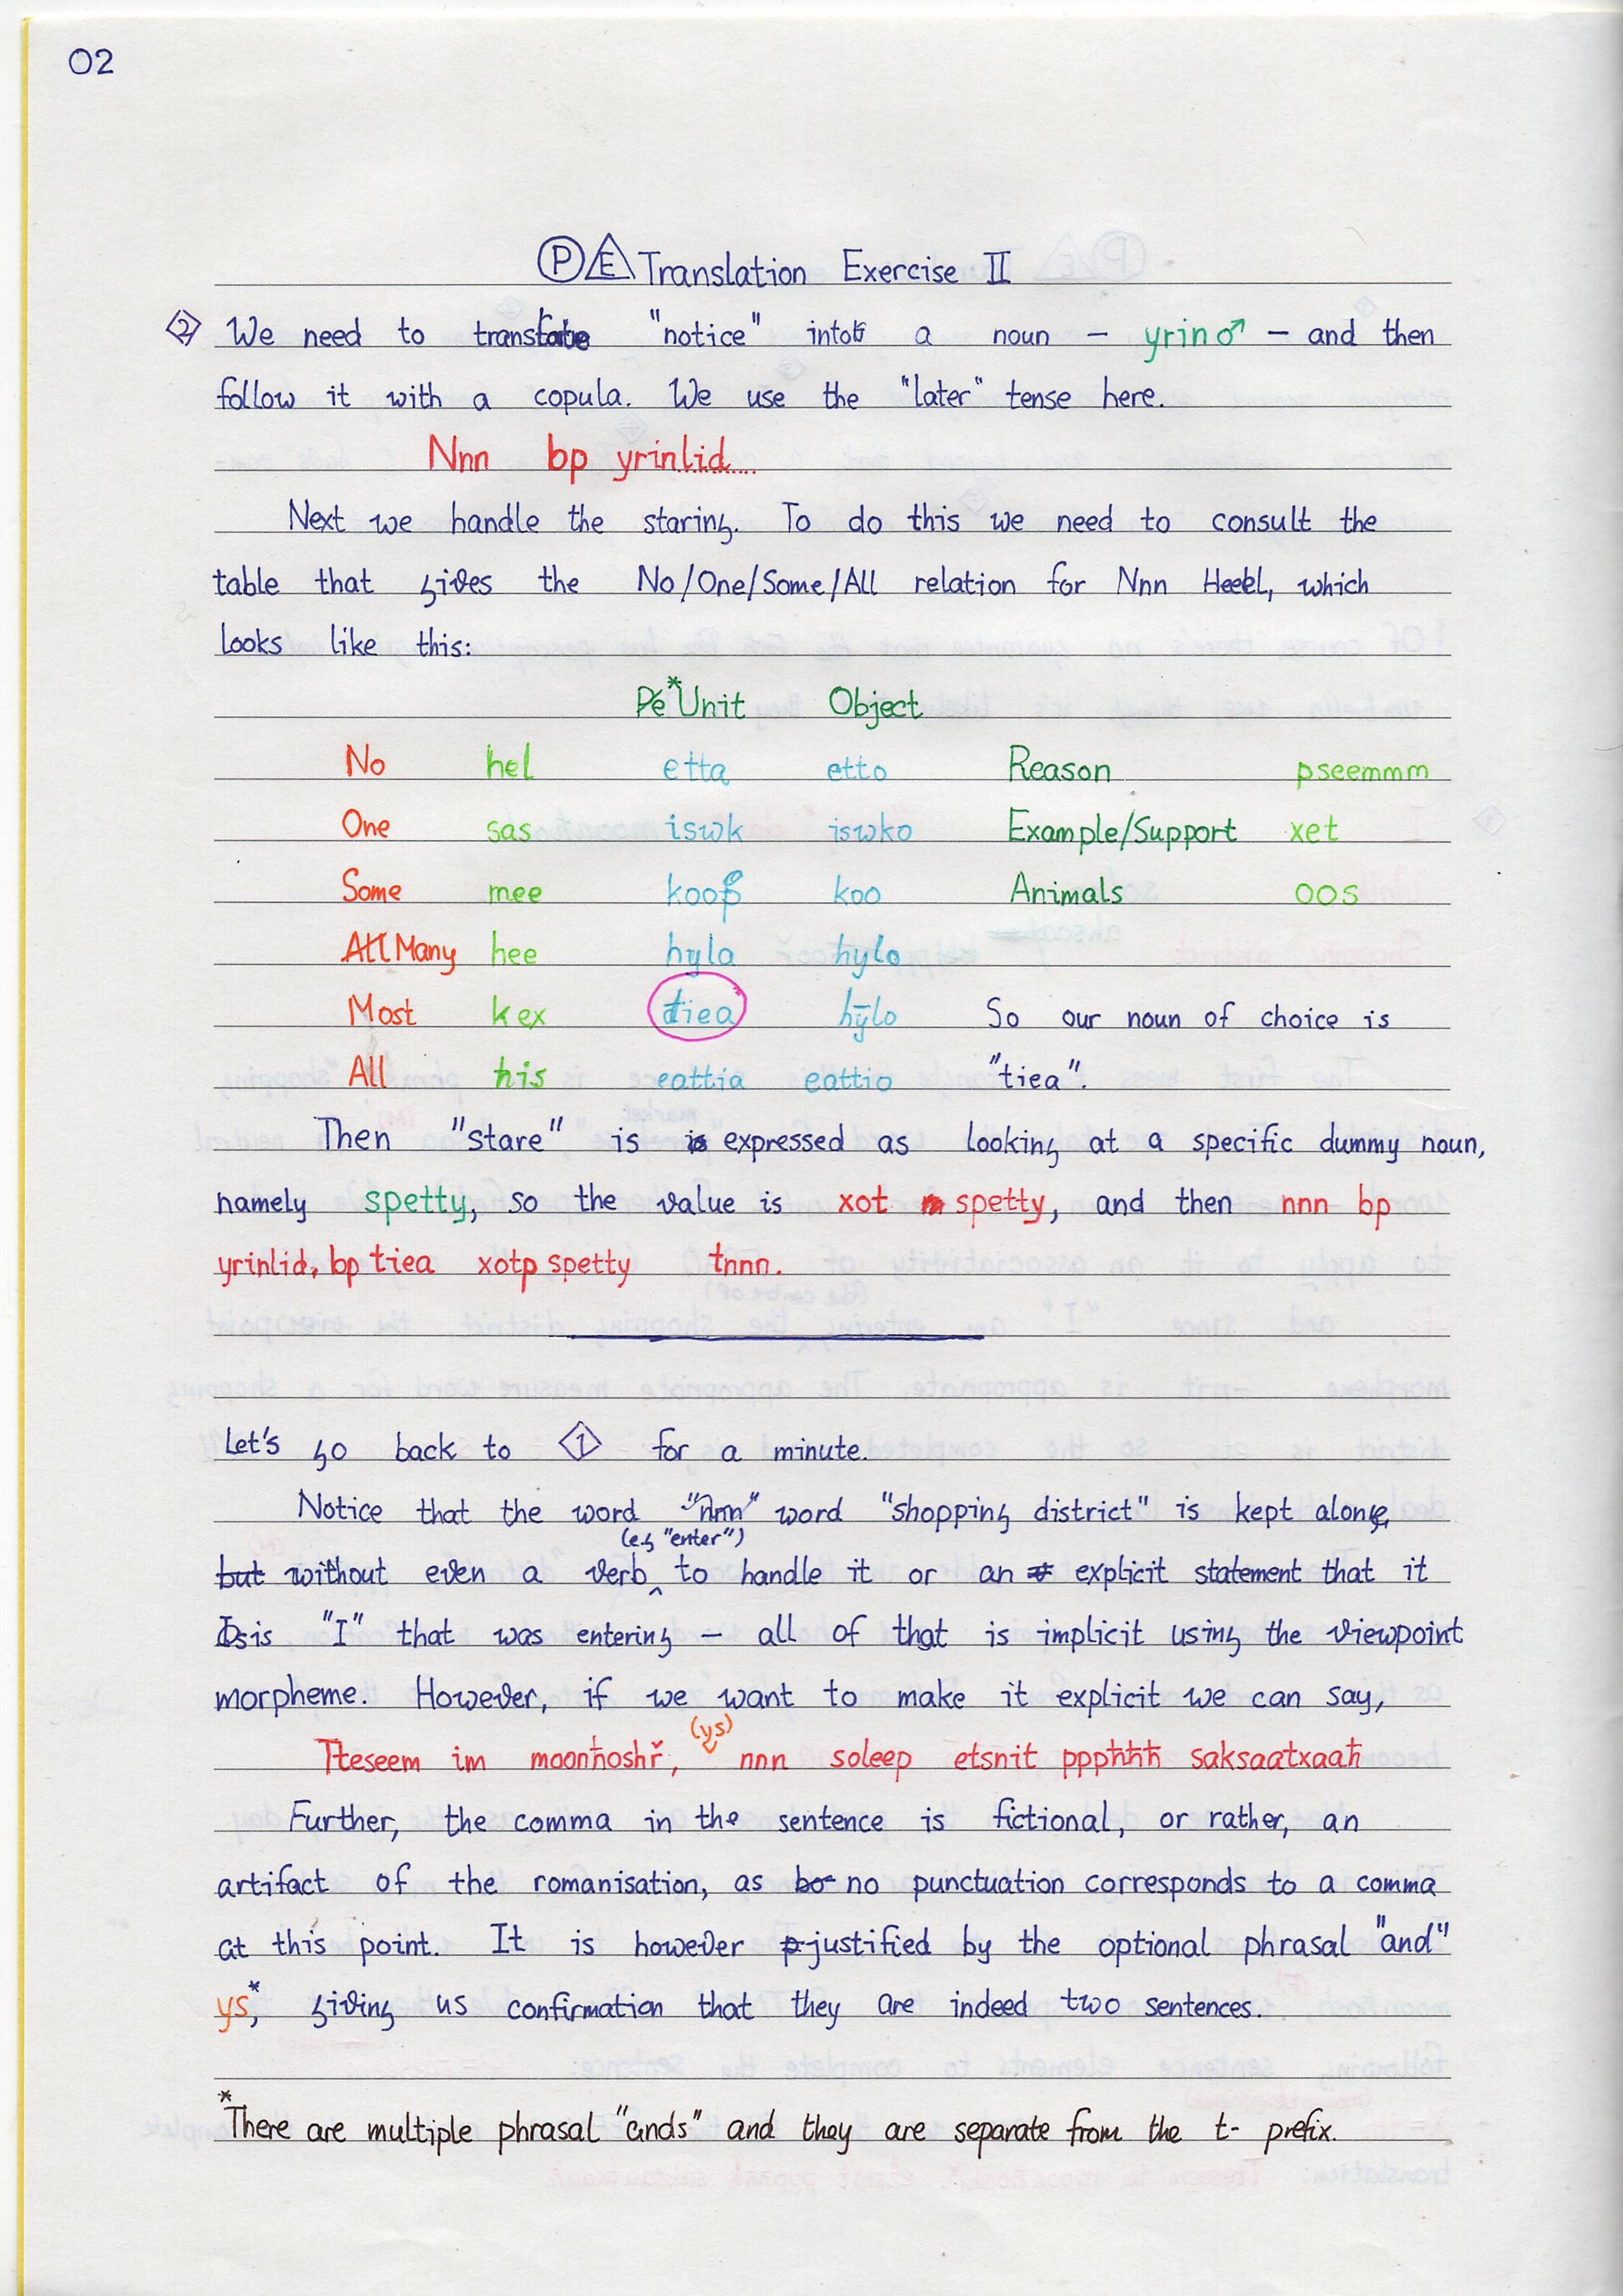 02
P E Translation Exercise II
2 We need to translate "notice" into a noun – yrin♂ – and then
follow it with a copula. We use the "later" tense here.
Nnn bp yrinlid....
Next we handle the staring. To do this we need to consult the
table that gives the No/One/Some/All relation for Nnn Heel, which
looks like this:
Pe*Unit Object
No hel etta etto Reason pseemmm
One sas iswk iswko Example/Support xet
Some mee koo koo Animals oos
All Many hee hyla hylo
Most kex tiea hȳlo So our noun of choice is
All his eattia eattio "tiea".
Then "stare" is expressed as looking at a specific dummy noun,
namely spetty, so the value is xot spetty, and then nnn bp
yrinlid, bp tiea xotp spetty tnnn.
Let's go back to 1 for a minute.
Notice that the word "nnn" word "shopping district" is kept alone,
(eg "enter")
but without even a verb ‸ to handle it or an explicit statement that it
is "I" that was entering – all of that is implicit using the viewpoint
morpheme. However, if we want to make it explicit we can say,
(ys)
Tteseem im moonħoshř, nnn soleep etsnit pppħħħ saksaatxaaħ
Further, the comma in the sentence is fictional, or rather, an
artifact of the romanisation, as bo no punctuation corresponds to a comma
at this point. It is however p justified by the optional phrasal "and"
ys*, giving us confirmation that they are indeed two sentences.
*There are multiple phrasal "ands" and they are separate from the t- prefix.